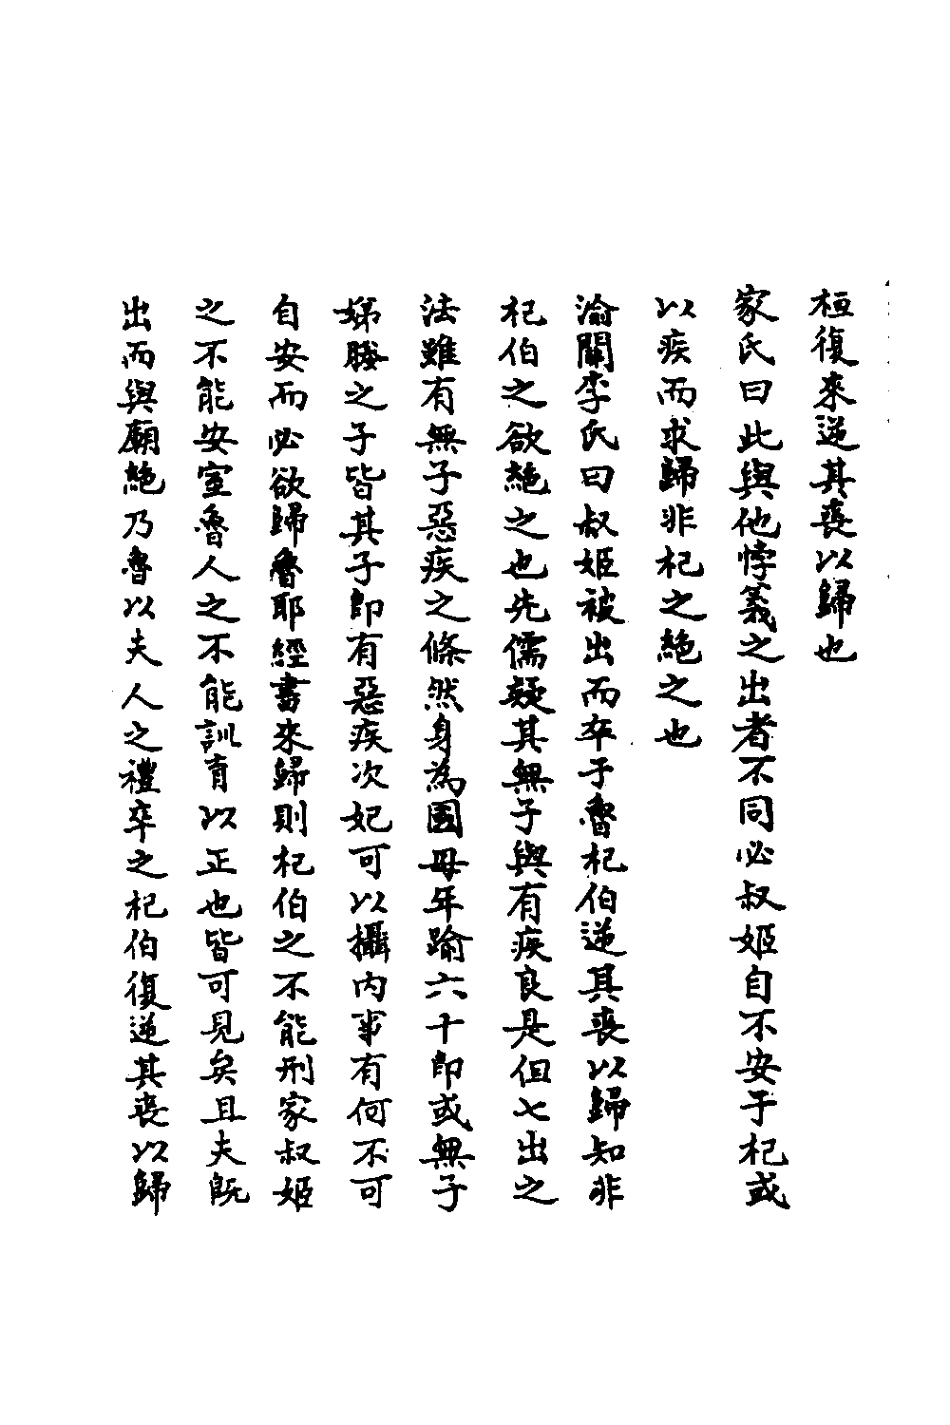 桓復來逆其喪以歸也
家氏曰此與他悖義之出者不同必叔姬自不安于杞或
以疾而求歸非杞之絕之也
渝關李氏曰叔姬被出而卒于魯杞伯逆其喪以歸知非
杞伯之欲絕之也先儒疑其無子與有疾良是但七出之
法雖有無子惡疾之條然身為國母年踰六十即或無子
娣媵之子皆其子即有惡疾次妃可以攝內事有何不可
自安而必欲歸魯耶經書來歸則杞伯之不能刑家叔姬
之不能安室魯人之不能訓育以正也皆可見矣且夫既
出而與廟絕乃魯以夫人之禮卒之杞伯復逆其喪以歸